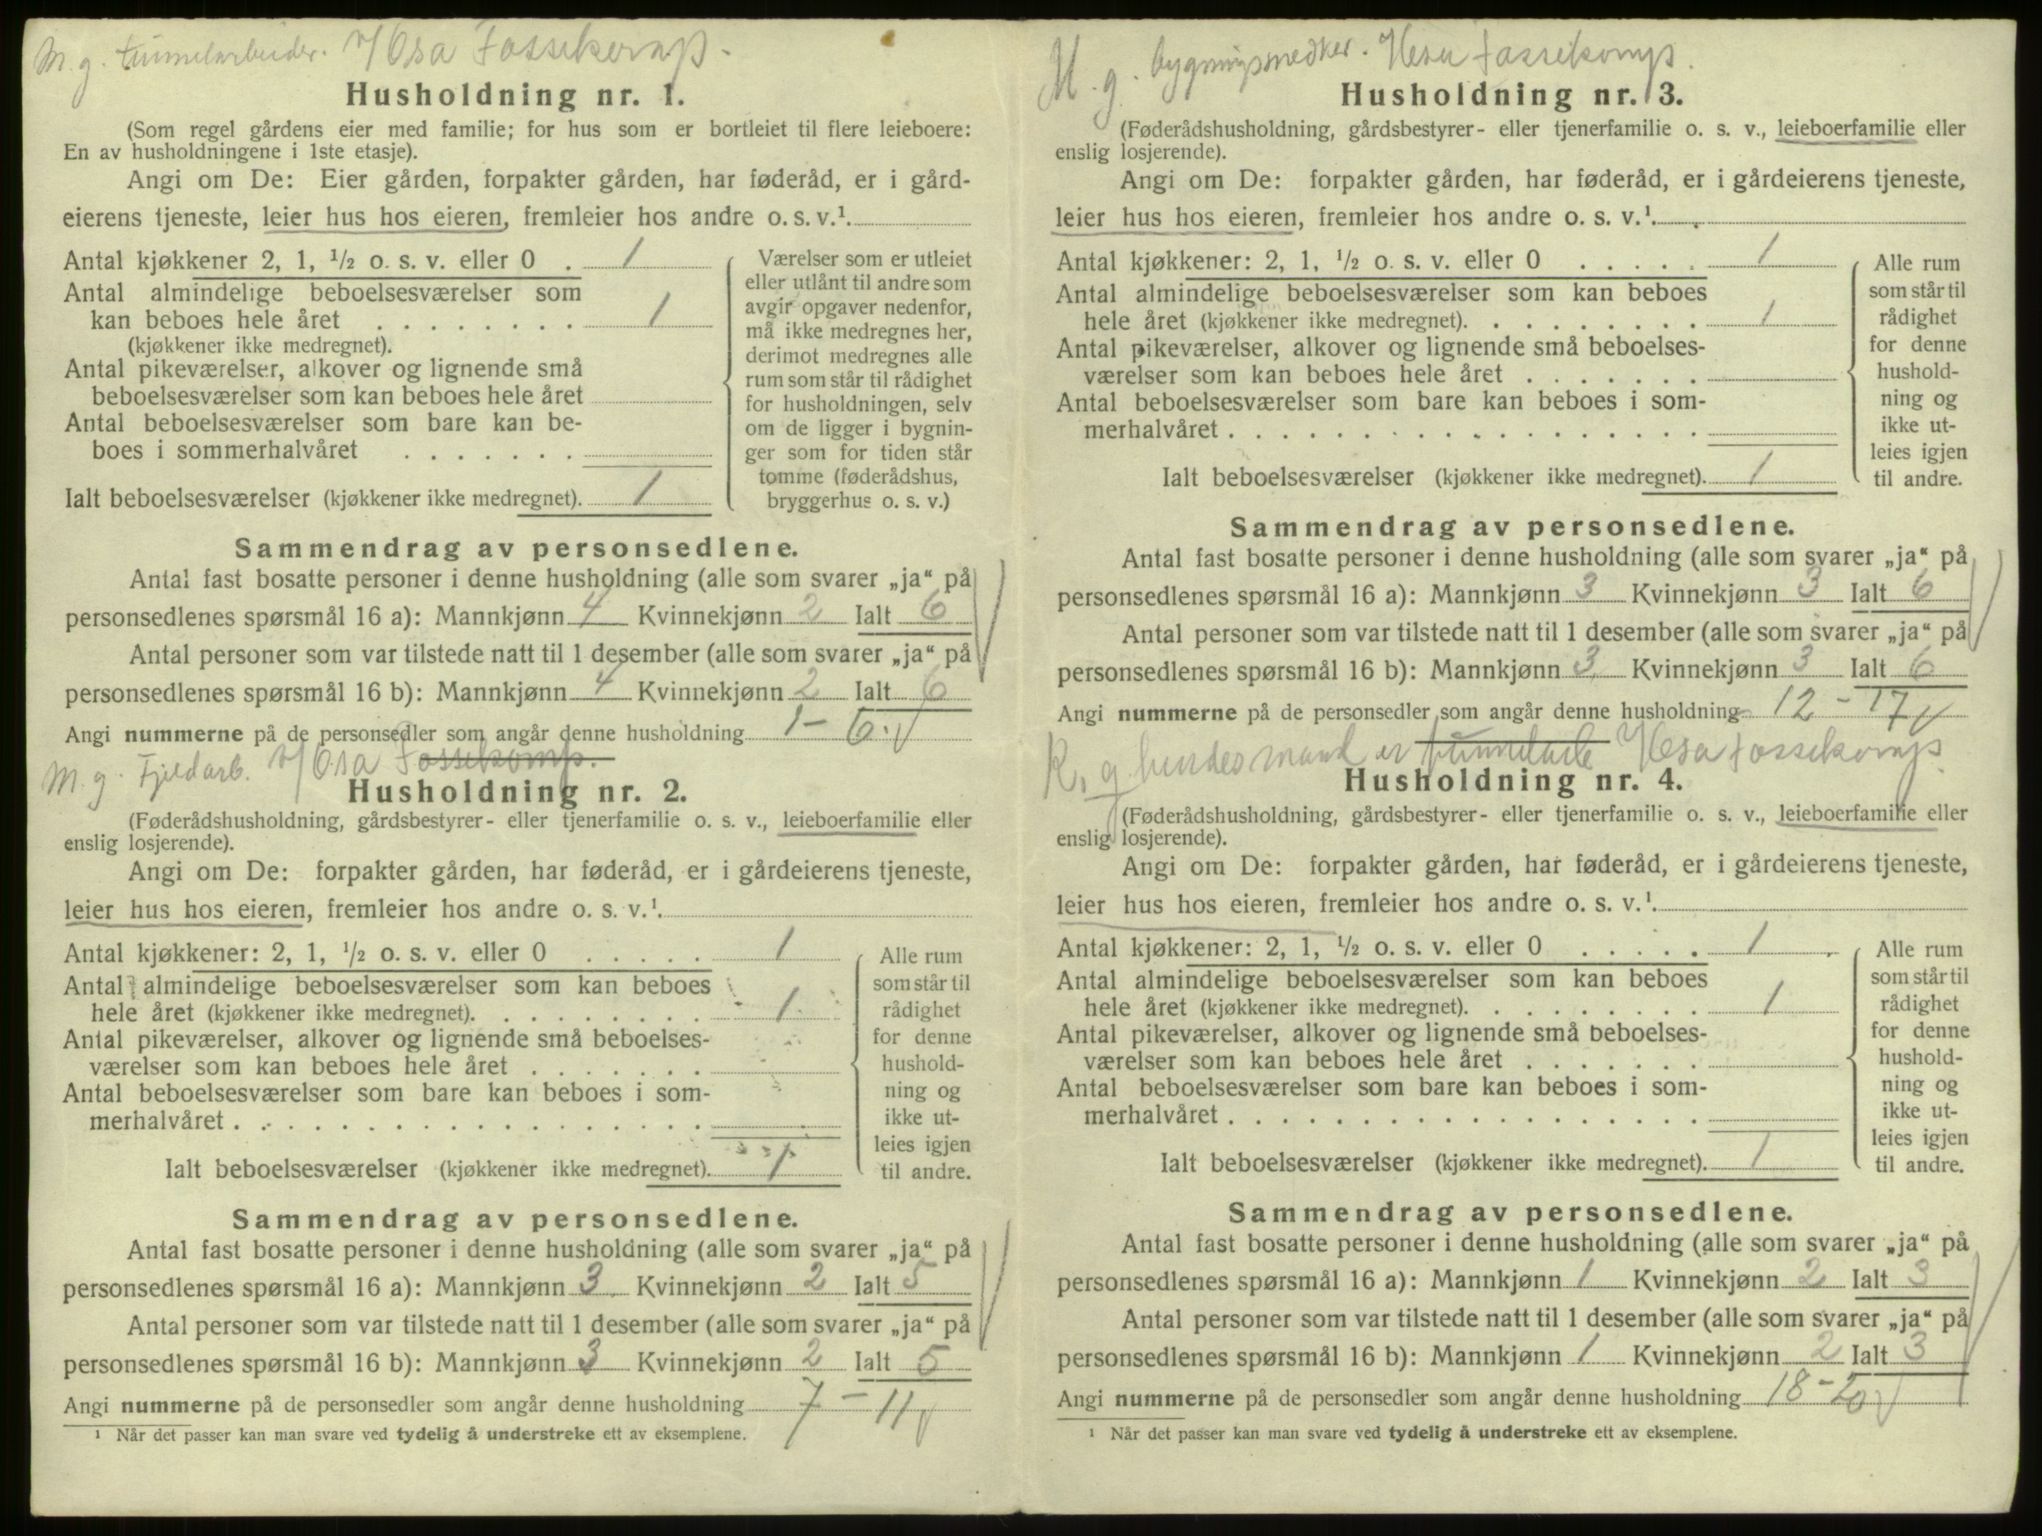 M. g. tunnelarbeider. v/Osa Fossekomp.
Husholdning nr. 1.
(Som regel gårdens eier med familie; for hus som er bortleiet til flere leieboere:
En av husholdningene i 1ste etasje).
Angi om De: Eier gården, forpakter gården, har føderåd, er i gård-
eierens tjeneste, leier hus hos eieren, fremleier hos andre o. s. v.¹
Antal kjøkkener 2, 1, ½ o. s. v. eller 0 . 1
Antal almindelige beboelsesværelser som
kan beboes hele året . . . . . . . . 1
(kjøkkener ikke medregnet).
Antal pikeværelser, alkover og lignende små
beboelsesværelser som kan beboes hele året
Antal beboelsesværelser som bare kan be-
boes i sommerhalvåret . . . . . . .
Ialt beboelsesværelser (kjøkkener ikke medregnet). 1
Værelser som er utleiet
eller utlånt til andre som
avgir opgaver nedenfor,
må ikke medregnes her,
derimot medregnes alle
rum som står til rådighet
for husholdningen, selv
om de ligger i bygnin-
ger som for tiden står
tomme (føderådshus,
bryggerhus o. s. v.)
Sammendrag av personsedlene.
Antal fast bosatte personer i denne husholdning (alle som svarer „ja“ på
personsedlenes spørsmål 16 a): Mannkjønn 4 Kvinnekjønn 2 Ialt 6
Antal personer som var tilstede natt til 1 desember (alle som svarer „ja“ på
personsedlenes spørsmål 16 b): Mannkjønn 4 Kvinnekjønn 2 Ialt 6
Angi nummerne på de personsedler som angår denne husholdning 1 – 6.
M. g. Fjeldarb. v/Osa Fossekomp.
Husholdning nr. 2.
(Føderådshusholdning, gårdsbestyrer- eller tjenerfamilie o. s. v., leieboerfamilie eller
enslig losjerende).
Angi om De: forpakter gården, har føderåd, er i gårdeierens tjeneste,
leier hus hos eieren, fremleier hos andre o. s. v.¹
Antal kjøkkener: 2, 1, ½ o. s. v. eller 0 . . . . . 1
Antal almindelige beboelsesværelser som kan beboes
hele året (kjøkkener ikke medregnet). . . . . . . . . 1
Antal pikeværelser, alkover og lignende små beboelses-
værelser som kan beboes hele året . . . . . . .
Antal beboelsesværelser som bare kan beboes i som-
merhalvåret . . . . . . . . . . . . . . . . . .
Ialt beboelsesværelser (kjøkkener ikke medregnet). 1
Alle rum
som står til
rådighet
for denne
hushold-
ning og
ikke ut-
leies igjen
til andre.
Sammendrag av personsedlene.
Antal fast bosatte personer i denne husholdning (alle som svarer „ja“ på
personsedlenes spørsmål 16 a): Mannkjønn 3 Kvinnekjønn 2 Ialt 5
Antal personer som var tilstede natt til 1 desember (alle som svarer „ja“ på
personsedlenes spørsmål 16 b): Mannkjønn 3 Kvinnekjønn 2 Ialt 5
Angi nummerne på de personsedler som angår denne husholdning 7 – 11
¹ Når det passer kan man svare ved tydelig å understreke ett av eksemplene.
M. g. bygningsmedker. Fossekomps.
Husholdning nr. 3.
(Føderådshusholdning, gårdsbestyrer- eller tjenerfamilie o. s. v., leieboerfamilie eller
enslig losjerende).
Angi om De: forpakter gården, har føderåd, er i gårdeierens tjeneste,
leier hus hos eieren, fremleier hos andre o. s. v.¹
Antal kjøkkener: 2, 1, ½ o. s. v. eller 0 . . . . . 1
Antal almindelige beboelsesværelser som kan beboes
hele året (kjøkkener ikke medregnet). . . . . . . . . 1
Antal pikeværelser, alkover og lignende små beboelses-
værelser som kan beboes hele året . . . . . . .
Antal beboelsesværelser som bare kan beboes i som-
merhalvåret . . . . . . . . . . . . . . . . . .
Ialt beboelsesværelser (kjøkkener ikke medregnet). 1
Alle rum
som står til
rådighet
for denne
hushold-
ning og
ikke ut-
leies igjen
til andre.
Sammendrag av personsedlene.
Antal fast bosatte personer i denne husholdning (alle som svarer „ja“ på
personsedlenes spørsmål 16 a): Mannkjønn 3 Kvinnekjønn 3 Ialt 6
Antal personer som var tilstede natt til 1 desember (alle som svarer „ja“ på
personsedlenes spørsmål 16 b): Mannkjønn 3 Kvinnekjønn 3 Ialt 6
Angi nummerne på de personsedler som angår denne husholdning 12 – 17
K. g. hendes mand er Fossekomps.
Husholdning nr. 4.
(Føderådshusholdning, gårdsbestyrer- eller tjenerfamilie o. s. v., leieboerfamilie eller
enslig losjerende).
Angi om De: forpakter gården, har føderåd, er i gårdeierens tjeneste,
leier hus hos eieren, fremleier hos andre o. s. v.¹
Antal kjøkkener: 2, 1, ½ o. s. v. eller 0 . . . . . 1
Antal almindelige beboelsesværelser som kan beboes
hele året (kjøkkener ikke medregnet). . . . . . . . . 1
Antal pikeværelser, alkover og lignende små beboelses-
værelser som kan beboes hele året . . . . . . .
Antal beboelsesværelser som bare kan beboes i som-
merhalvåret . . . . . . . . . . . . . . . . . .
Ialt beboelsesværelser (kjøkkener ikke medregnet). 1
Alle rum
som står til
rådighet
for denne
hushold-
ning og
ikke ut-
leies igjen
til andre.
Sammendrag av personsedlene.
Antal fast bosatte personer i denne husholdning (alle som svarer „ja“ på
personsedlenes spørsmål 16 a): Mannkjønn 1 Kvinnekjønn 2 Ialt 3
Antal personer som var tilstede natt til 1 desember (alle som svarer „ja“ på
personsedlenes spørsmål 16 b): Mannkjønn 1 Kvinnekjønn 2 Ialt 3
Angi nummerne på de personsedler som angår denne husholdning 18 – 20
¹ Når det passer kan man svare ved tydelig å understreke ett av eksemplene.